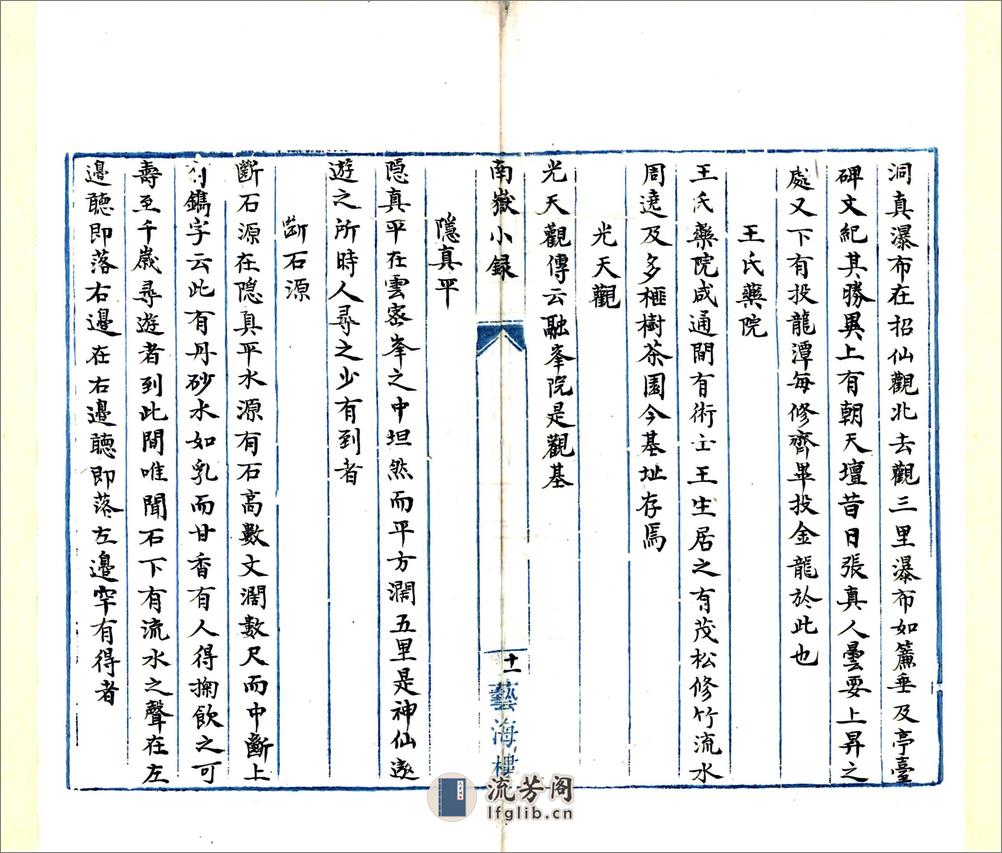 洞真瀑布在招仙觀北去觀三里瀑布如簾垂及亭臺
碑文紀其勝異上有朝天壇昔日張真人曇要上昇之
處又下有投龍潭每修齊畢投金龍於此也
王氏藥院
王氏藥院咸通間有術士王生居之有茂松修竹流水
周遶及多榧樹茶園今基址存焉
光天觀
光天觀傳云融峯院是觀基
南嶽小録
十一
藝海樓
隱真平
隱真平在雲密峯之中坦然而平方濶五里是神仙遨
遊之所時人尋之少有到者
斷石源
斷石源在隱真平水源有石高數丈濶數尺而中斷上
有鐫字云此有丹砂水如乳而甘香有人得掬飲之可
壽至千歲尋遊者到此間唯聞石下有流水之聲在左
邊聽即落右邊在右邊聽即落左邊罕有得者
流芳阁
lfglib.cn